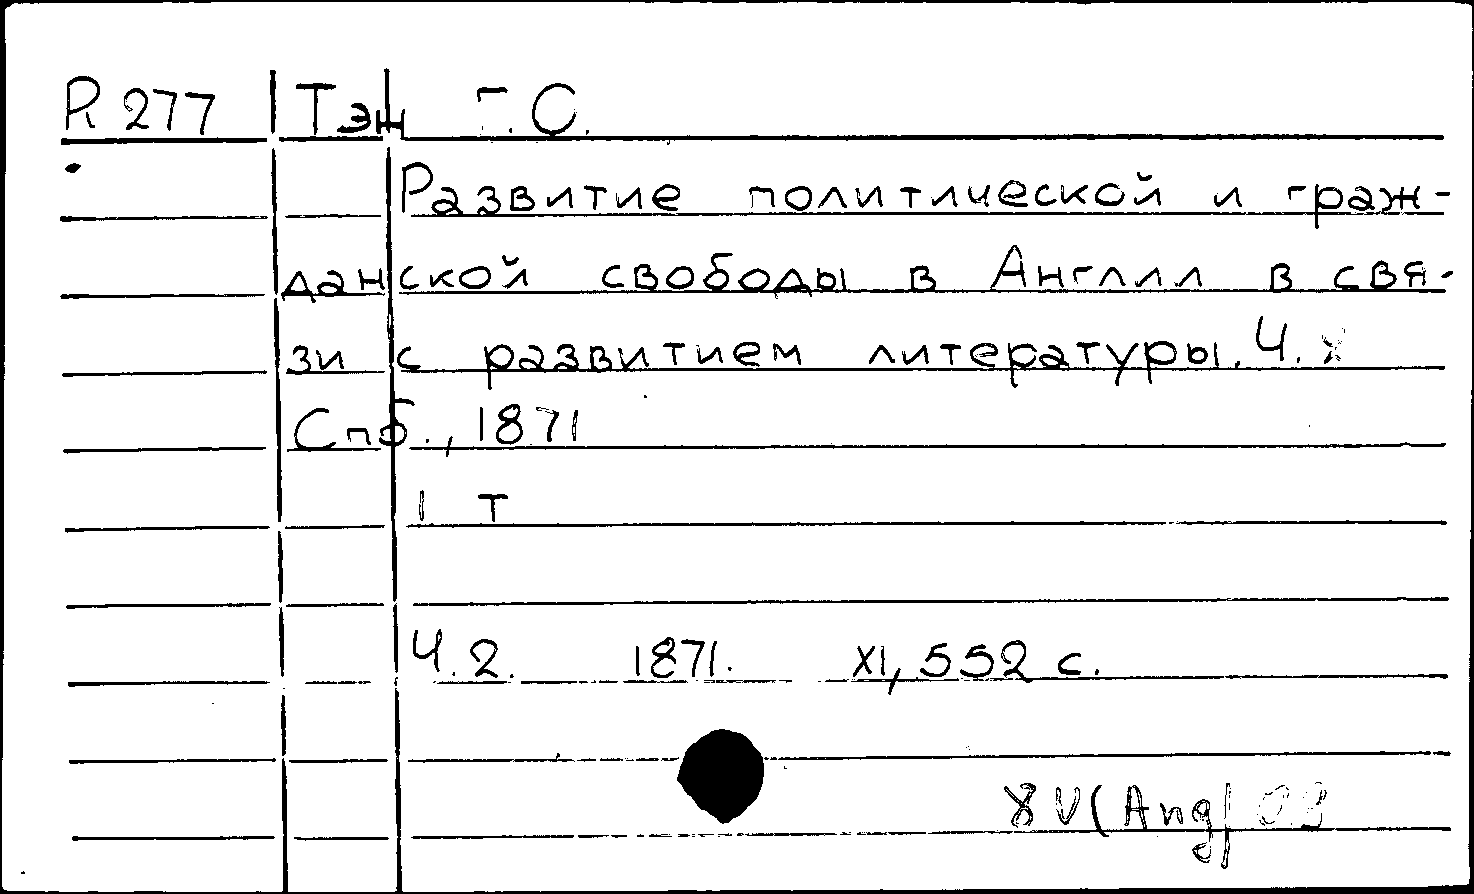 R 277 Тэн Г. С.
Развитие политической и граж-
данской свободы в Англии в свя-
зи с развитием литературы. Ч.
Спб., 1871
1 т
Ч. 2. 1871. XI, 552 с.
8V(Ang)